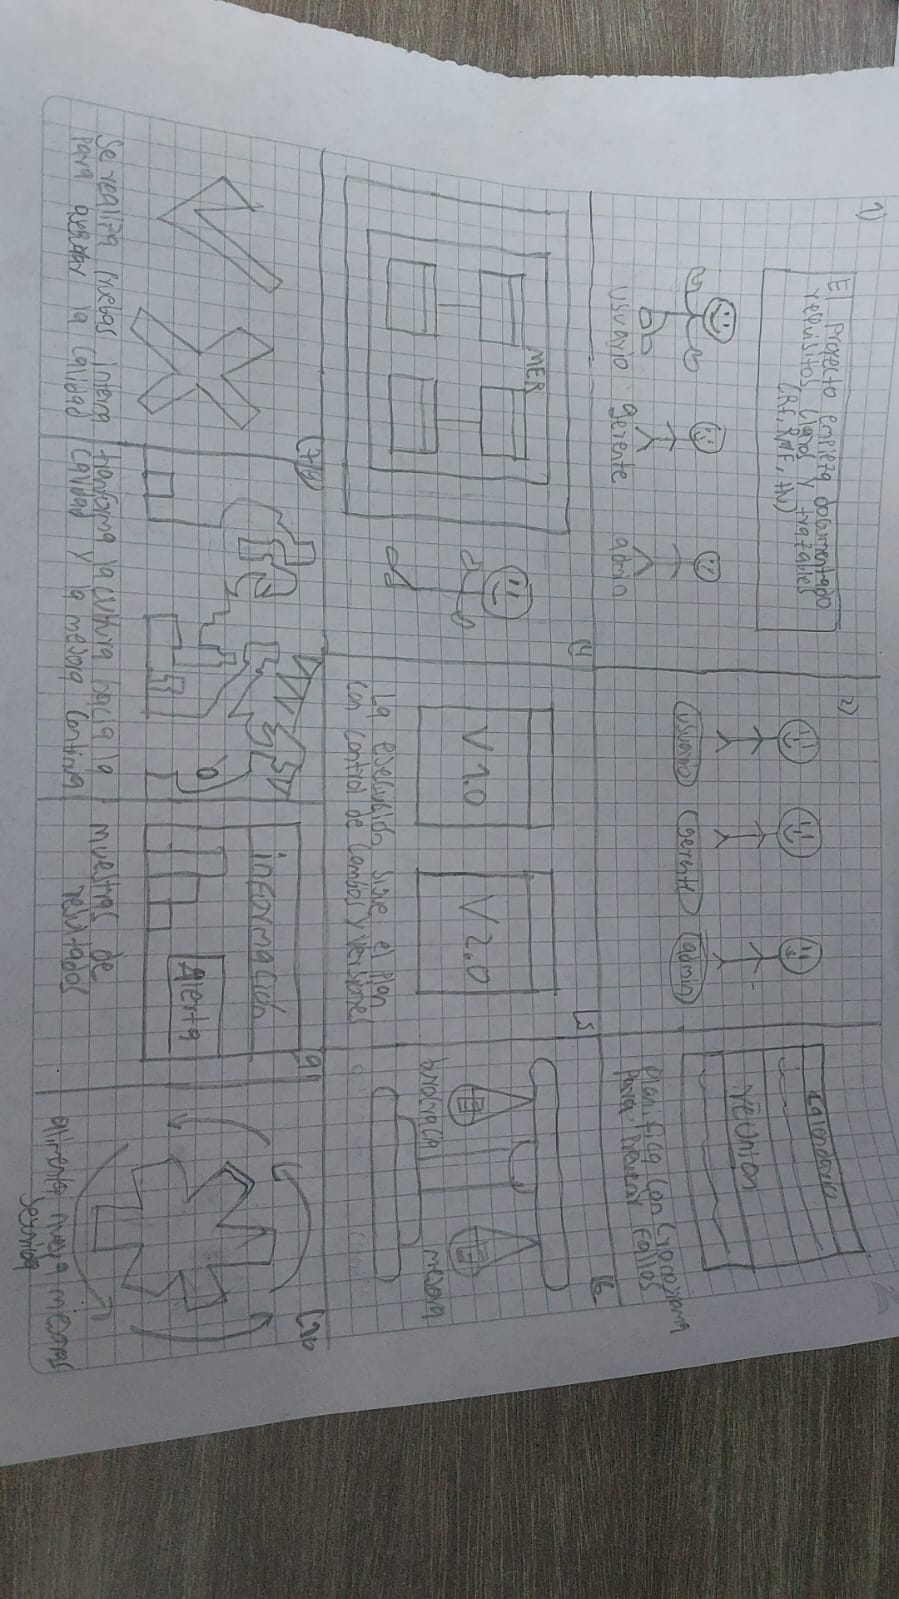 1)
El proyecto empieza documentado
requisitos claros y trazables
(RF, RNF, HU)
usuario gerente admin
2)
usuario gerente admin
calendario
reunion
Planifica con cronograma
para prevenir fallos
4
MER
5
V 1.0
V 2.0
La ejecución sigue el plan
con control de cambios y versiones
6
brecha
mejora
7
Se realiza pruebas interna
para guardar la calidad
8
transforma la cultura hacia la
calidad y la mejora continua
9
información
Alerta
muestras de
resultados
10
alimenta nueva mejoras